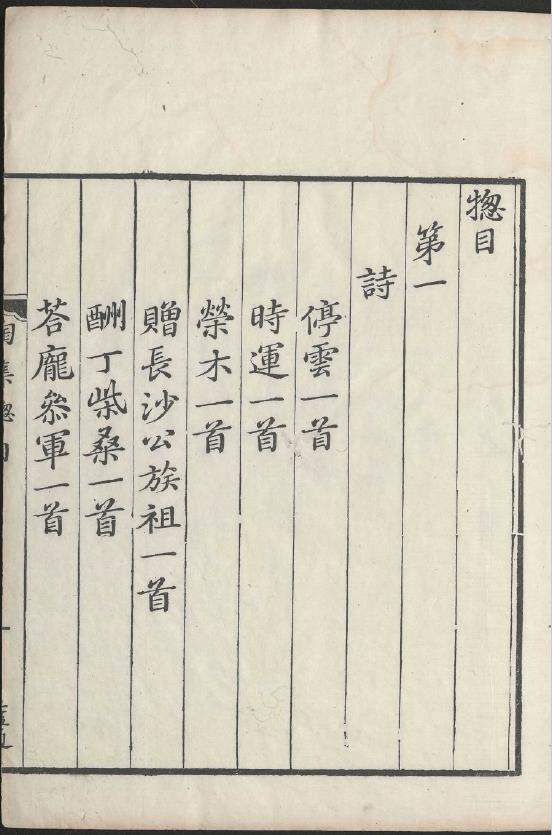 揔目
第一
詩
停雲一首
時運一首
榮木一首
贈長沙公族祖一首
酬丁柴桑一首
荅龐叅軍一首
陶集揔目
一